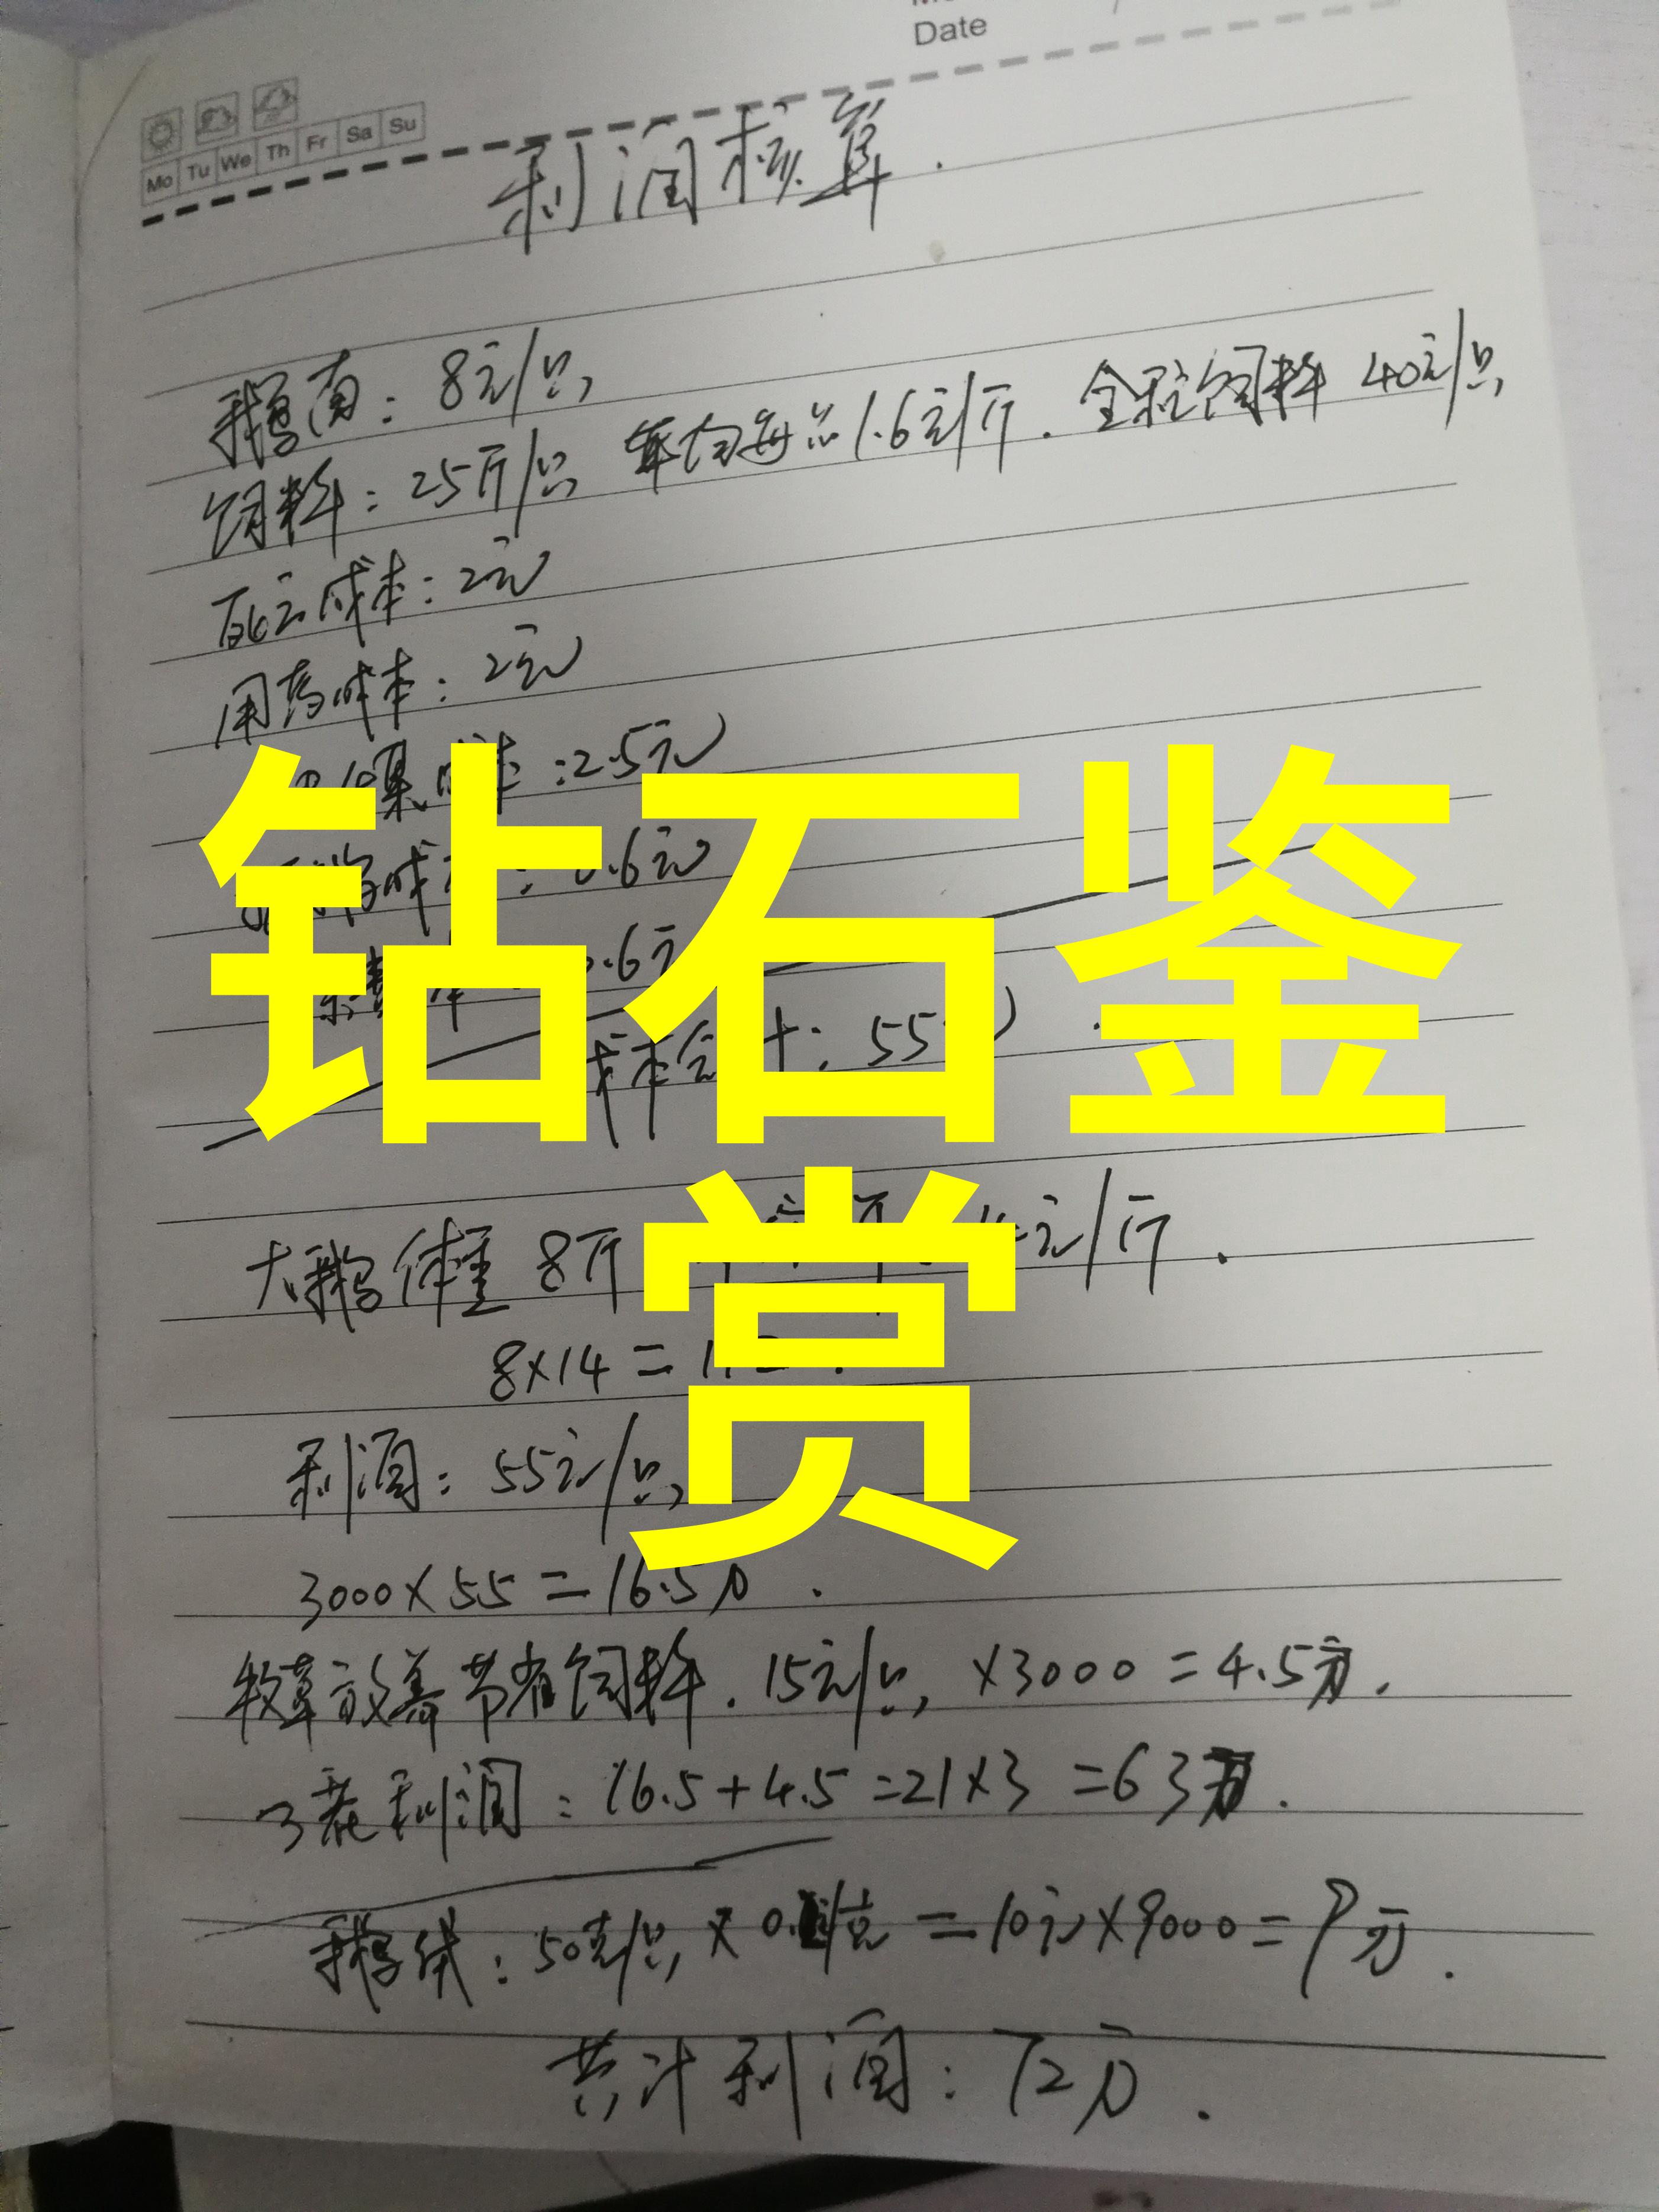 Date
Mo Tu We Th Fr Sa Su
利润核算.
鹅苗: 8元/只
饲料: 25斤/只 平均每斤1.6元/斤. 全程饲料 40元/只
死亡成本: 2元
用药成本: 2元
:2.5元
.6元
.6元
成本合计: 55
钻石鉴
赏
大鹅体重 8斤 元/斤.
8×14=
利润: 55元/只
3000×55=16.5万.
牧草放养节省饲料. 15元/只, ×3000=4.5万.
3茬利润: 16.5+4.5=21×3=63万.
鹅绒: 50克/只 × 0. /克=10元×9000=9万.
共计利润: 72万.